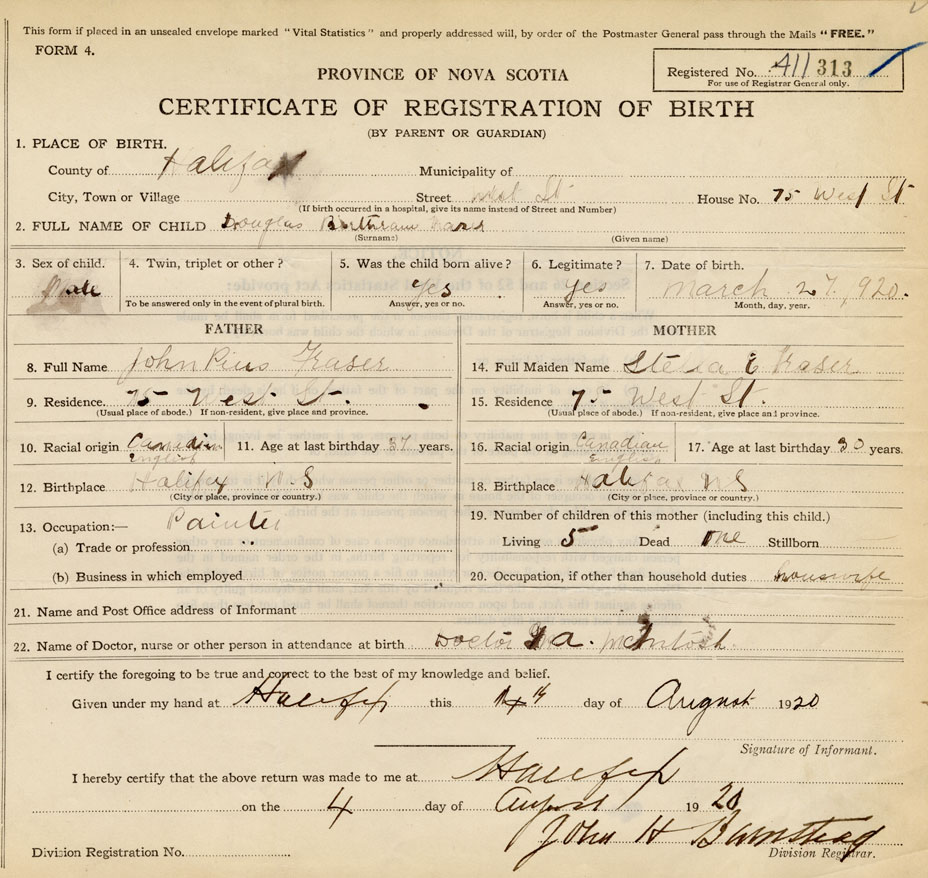 This form if placed in an unsealed envelope marked "Vital Statistics" and properly addressed will, by order of the Postmaster General pass through the Mails "FREE."
FORM 4.
PROVINCE OF NOVA SCOTIA
Registered No. 411 313
For use of Registrar General only.
CERTIFICATE OF REGISTRATION OF BIRTH
(BY PARENT OR GUARDIAN)
1. PLACE OF BIRTH.
County of Halifax Municipality of
City, Town or Village Street West St House No. 75 West St
(If birth occurred in a hospital, give its name instead of Street and Number)
2. FULL NAME OF CHILD Douglas Fraser
(Surname) (Given name)
3. Sex of child. 4. Twin, triplet or other? 5. Was the child born alive? 6. Legitimate? 7. Date of birth.
Male Yes yes March 27, 1920.
To be answered only in the event of plural birth. Answer, yes or no. Answer, yes or no. Month, day, year.
FATHER MOTHER
8. Full Name John Pius Fraser 14. Full Maiden Name Stella E Fraser
9. Residence. 75 West St. 15. Residence 75 West St.
(Usual place of abode.) If non-resident, give place and province. (Usual place of abode.) If non-resident, give place and province.
10. Racial origin Canadian English 11. Age at last birthday 37 years. 16. Racial origin Canadian English 17. Age at last birthday 30 years.
12. Birthplace Halifax N.S 18. Birthplace Halifax N S
(City or place, province or country.) (City or place, province or country.)
13. Occupation:— Painter 19. Number of children of this mother (including this child.)
(a) Trade or profession Living 5 Dead one Stillborn
(b) Business in which employed 20. Occupation, if other than household duties housewife
21. Name and Post Office address of Informant
22. Name of Doctor, nurse or other person in attendance at birth Doctor a. McIntosh.
I certify the foregoing to be true and correct to the best of my knowledge and belief.
Given under my hand at Halifax this 4 day of August 1920
Signature of Informant.
I hereby certify that the above return was made to me at Halifax
on the 4 day of August 1920
John H Barnstead
Division Registration No. Division Registrar.